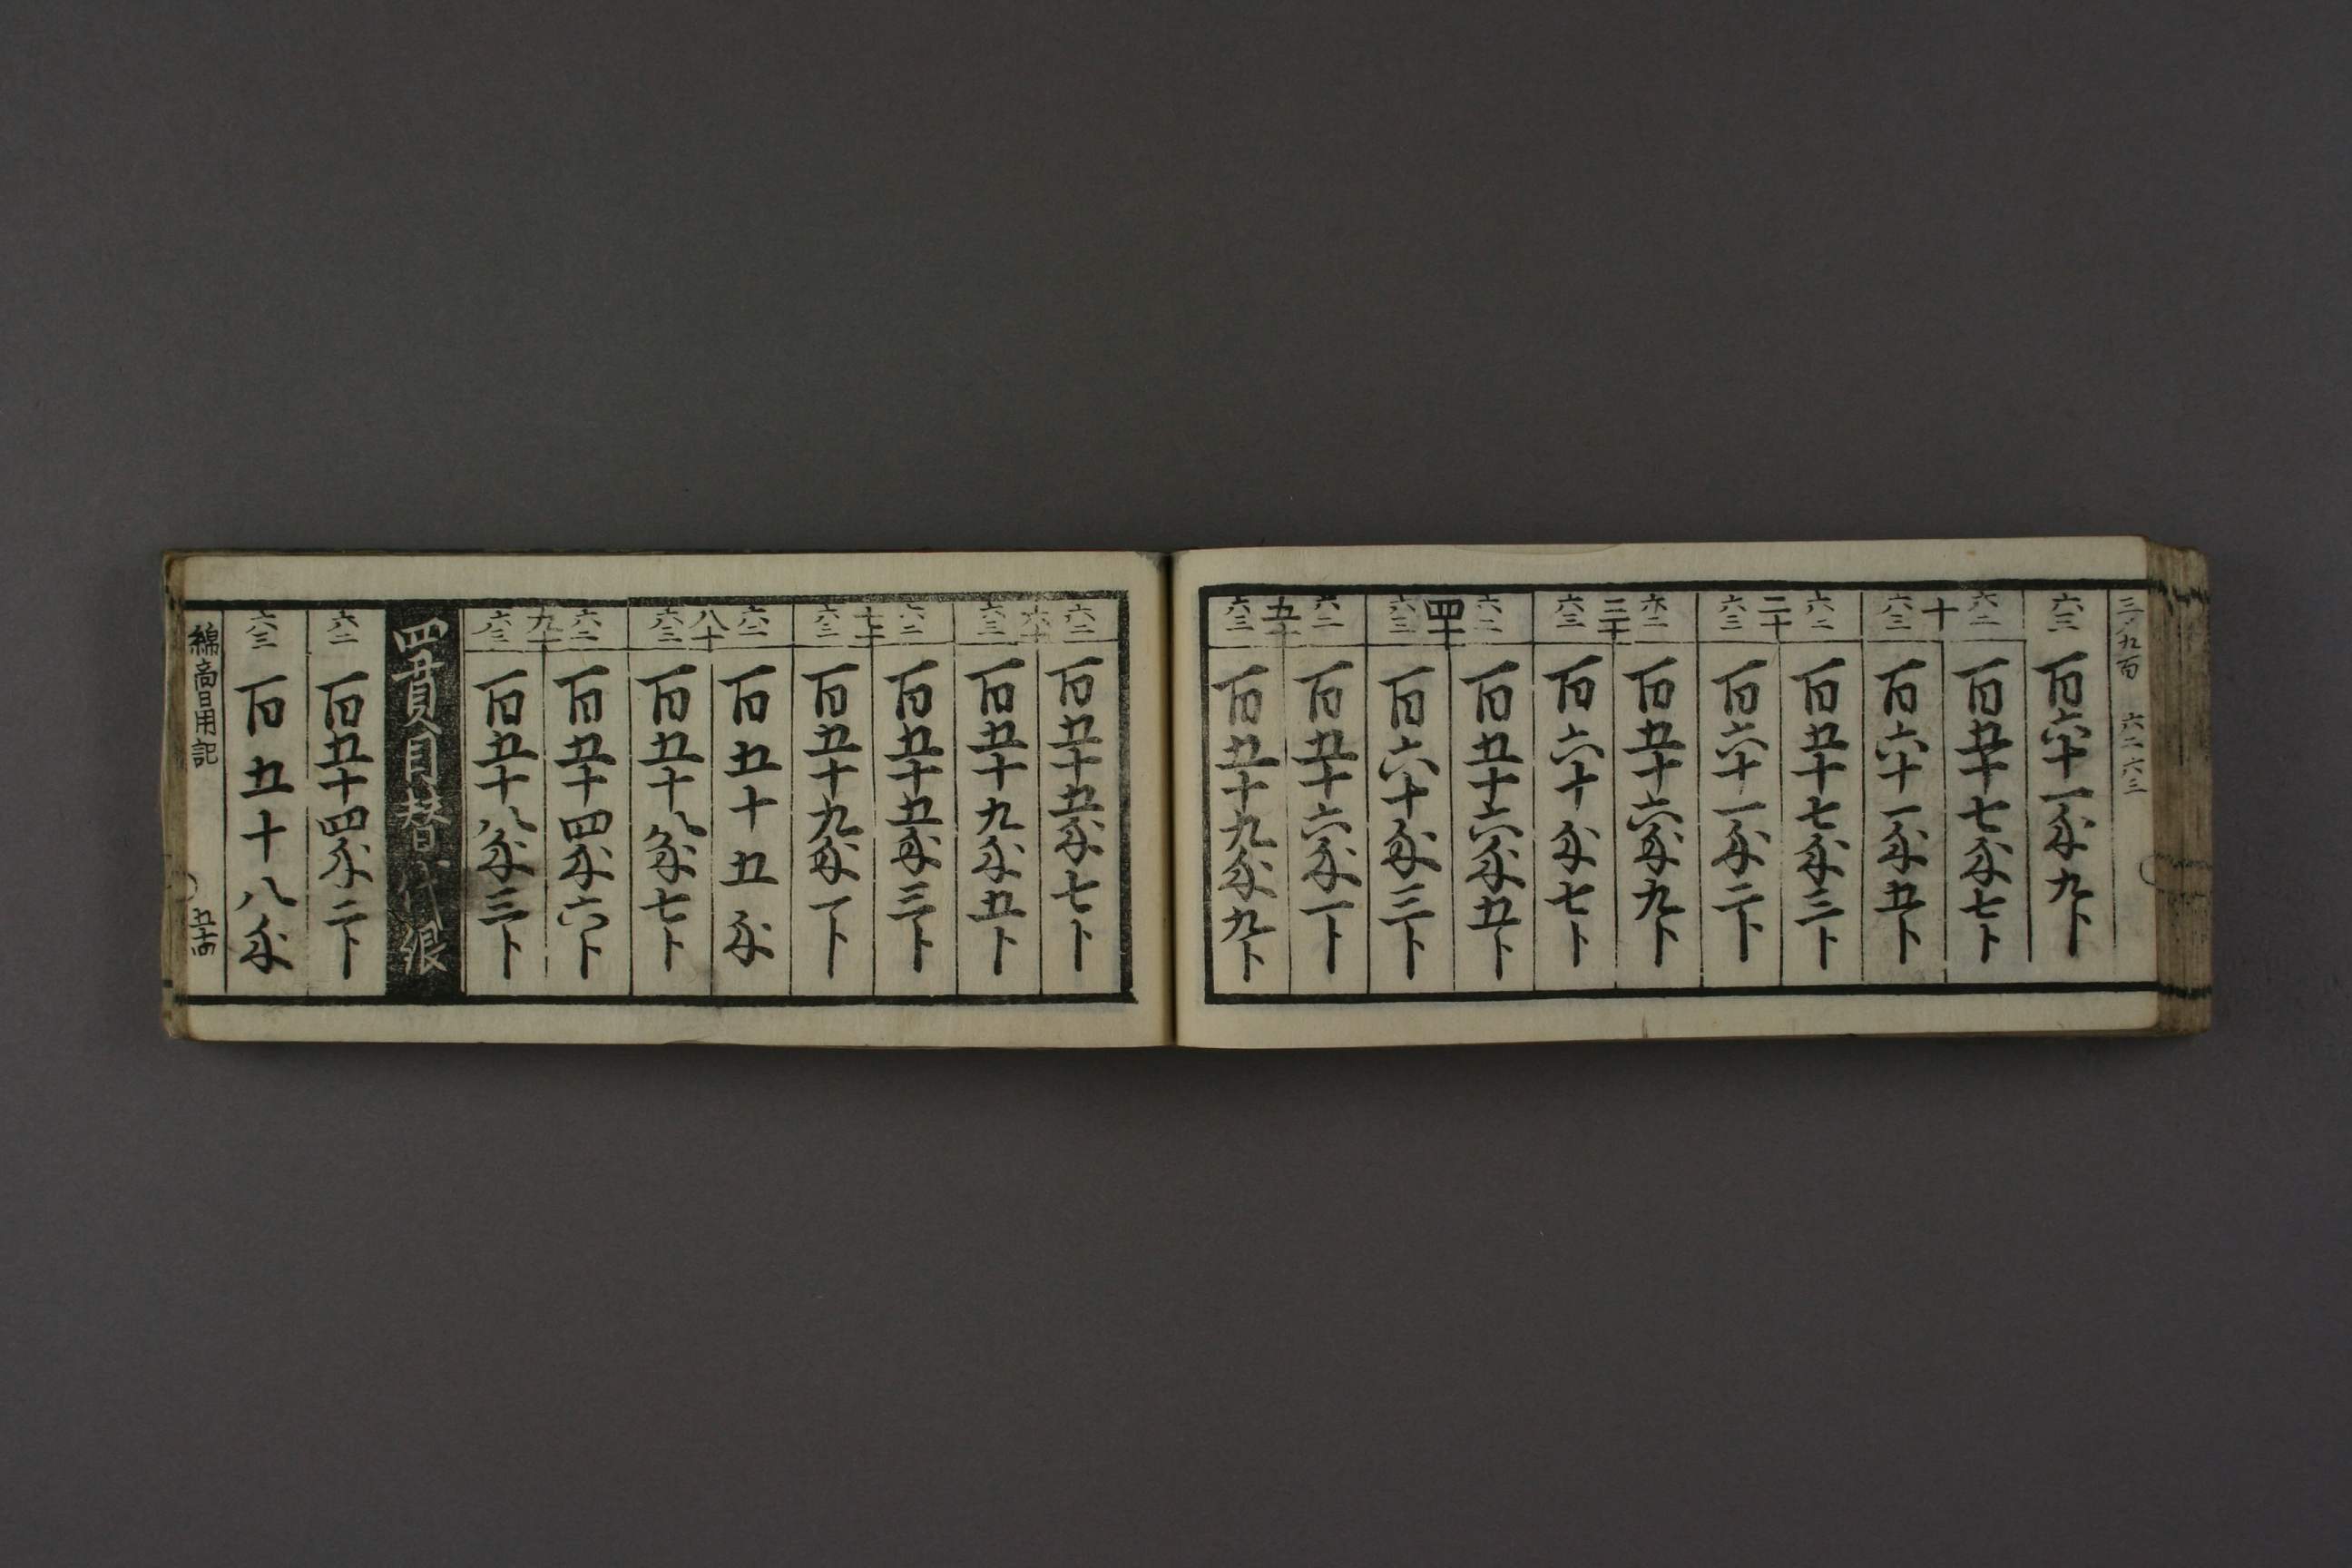 三ノ九百 六二六三
六三 百六十一匁九卜
十
六二 百五十七匁七卜
六三 百六十一匁五卜
二十
六二 百五十七匁三卜
六三 百六十一匁二卜
三十
六二 百五十六匁九卜
六三 百六十匁七卜
四十
六二 百五十六匁五卜
六三 百六十匁三卜
五十
六二 百五十六匁一卜
六三 百五十九匁九卜
六十
六二 百五十五匁七卜
六三 百五十九匁五卜
七十
六二 百五十五匁三卜
六三 百五十九匁一卜
八十
六二 百五十五匁
六三 百五十八匁七卜
九十
六二 百五十四匁六卜
六三 百五十八匁三卜
四貫目替代銀
六二 百五十四匁二卜
六三 百五十八匁
綿商日用記 五十四